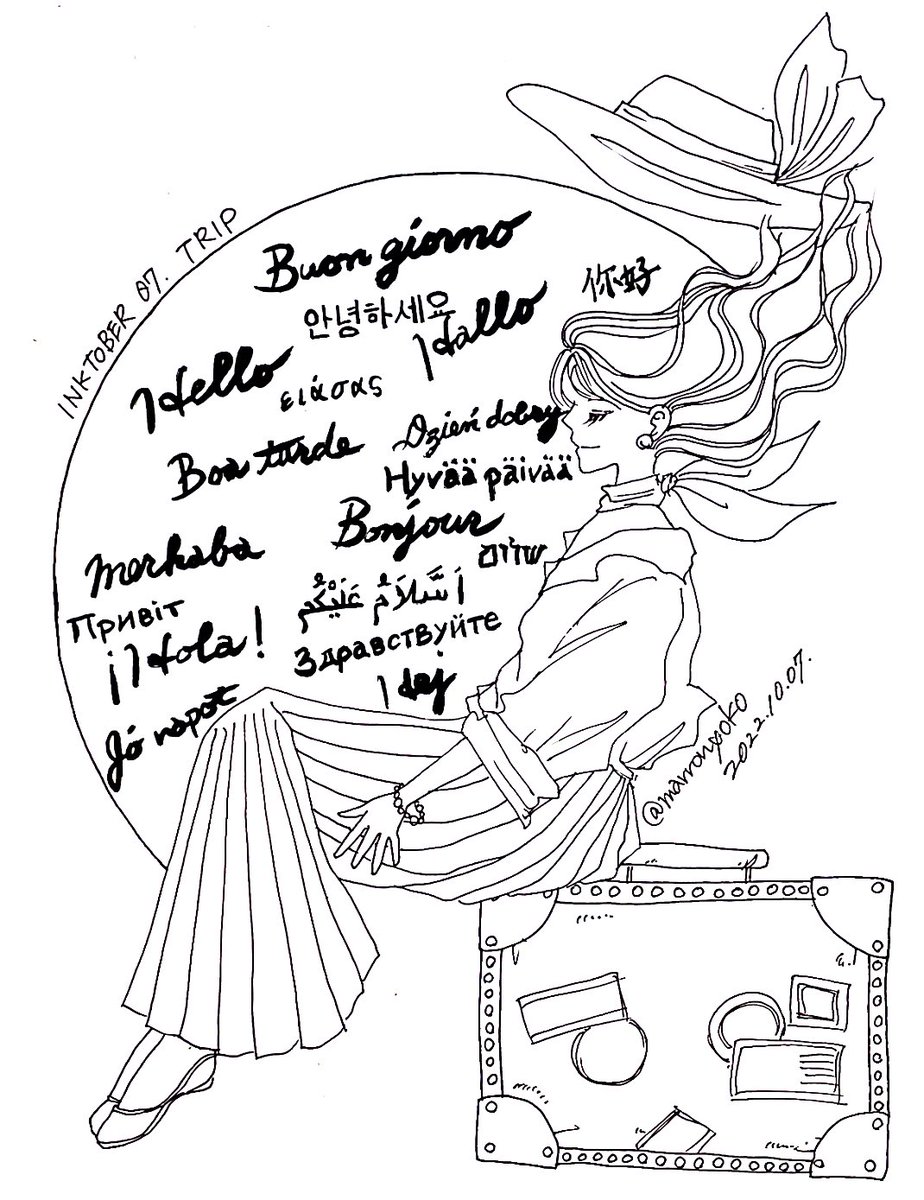 INKTOBER 07. TRIP
Buon giorno
안녕하세요
Hallo
你好
Hello
ειάσας
Boa tarde
Dzień dobry
Hyvää päivää
Merhaba
Bonjour
שלום
Привіт
اَسَّلَامُ عَلَيْكُم
¡Hola!
Здравствуйте
Hej
Jó napot
@marronxoko
2022.10.07.